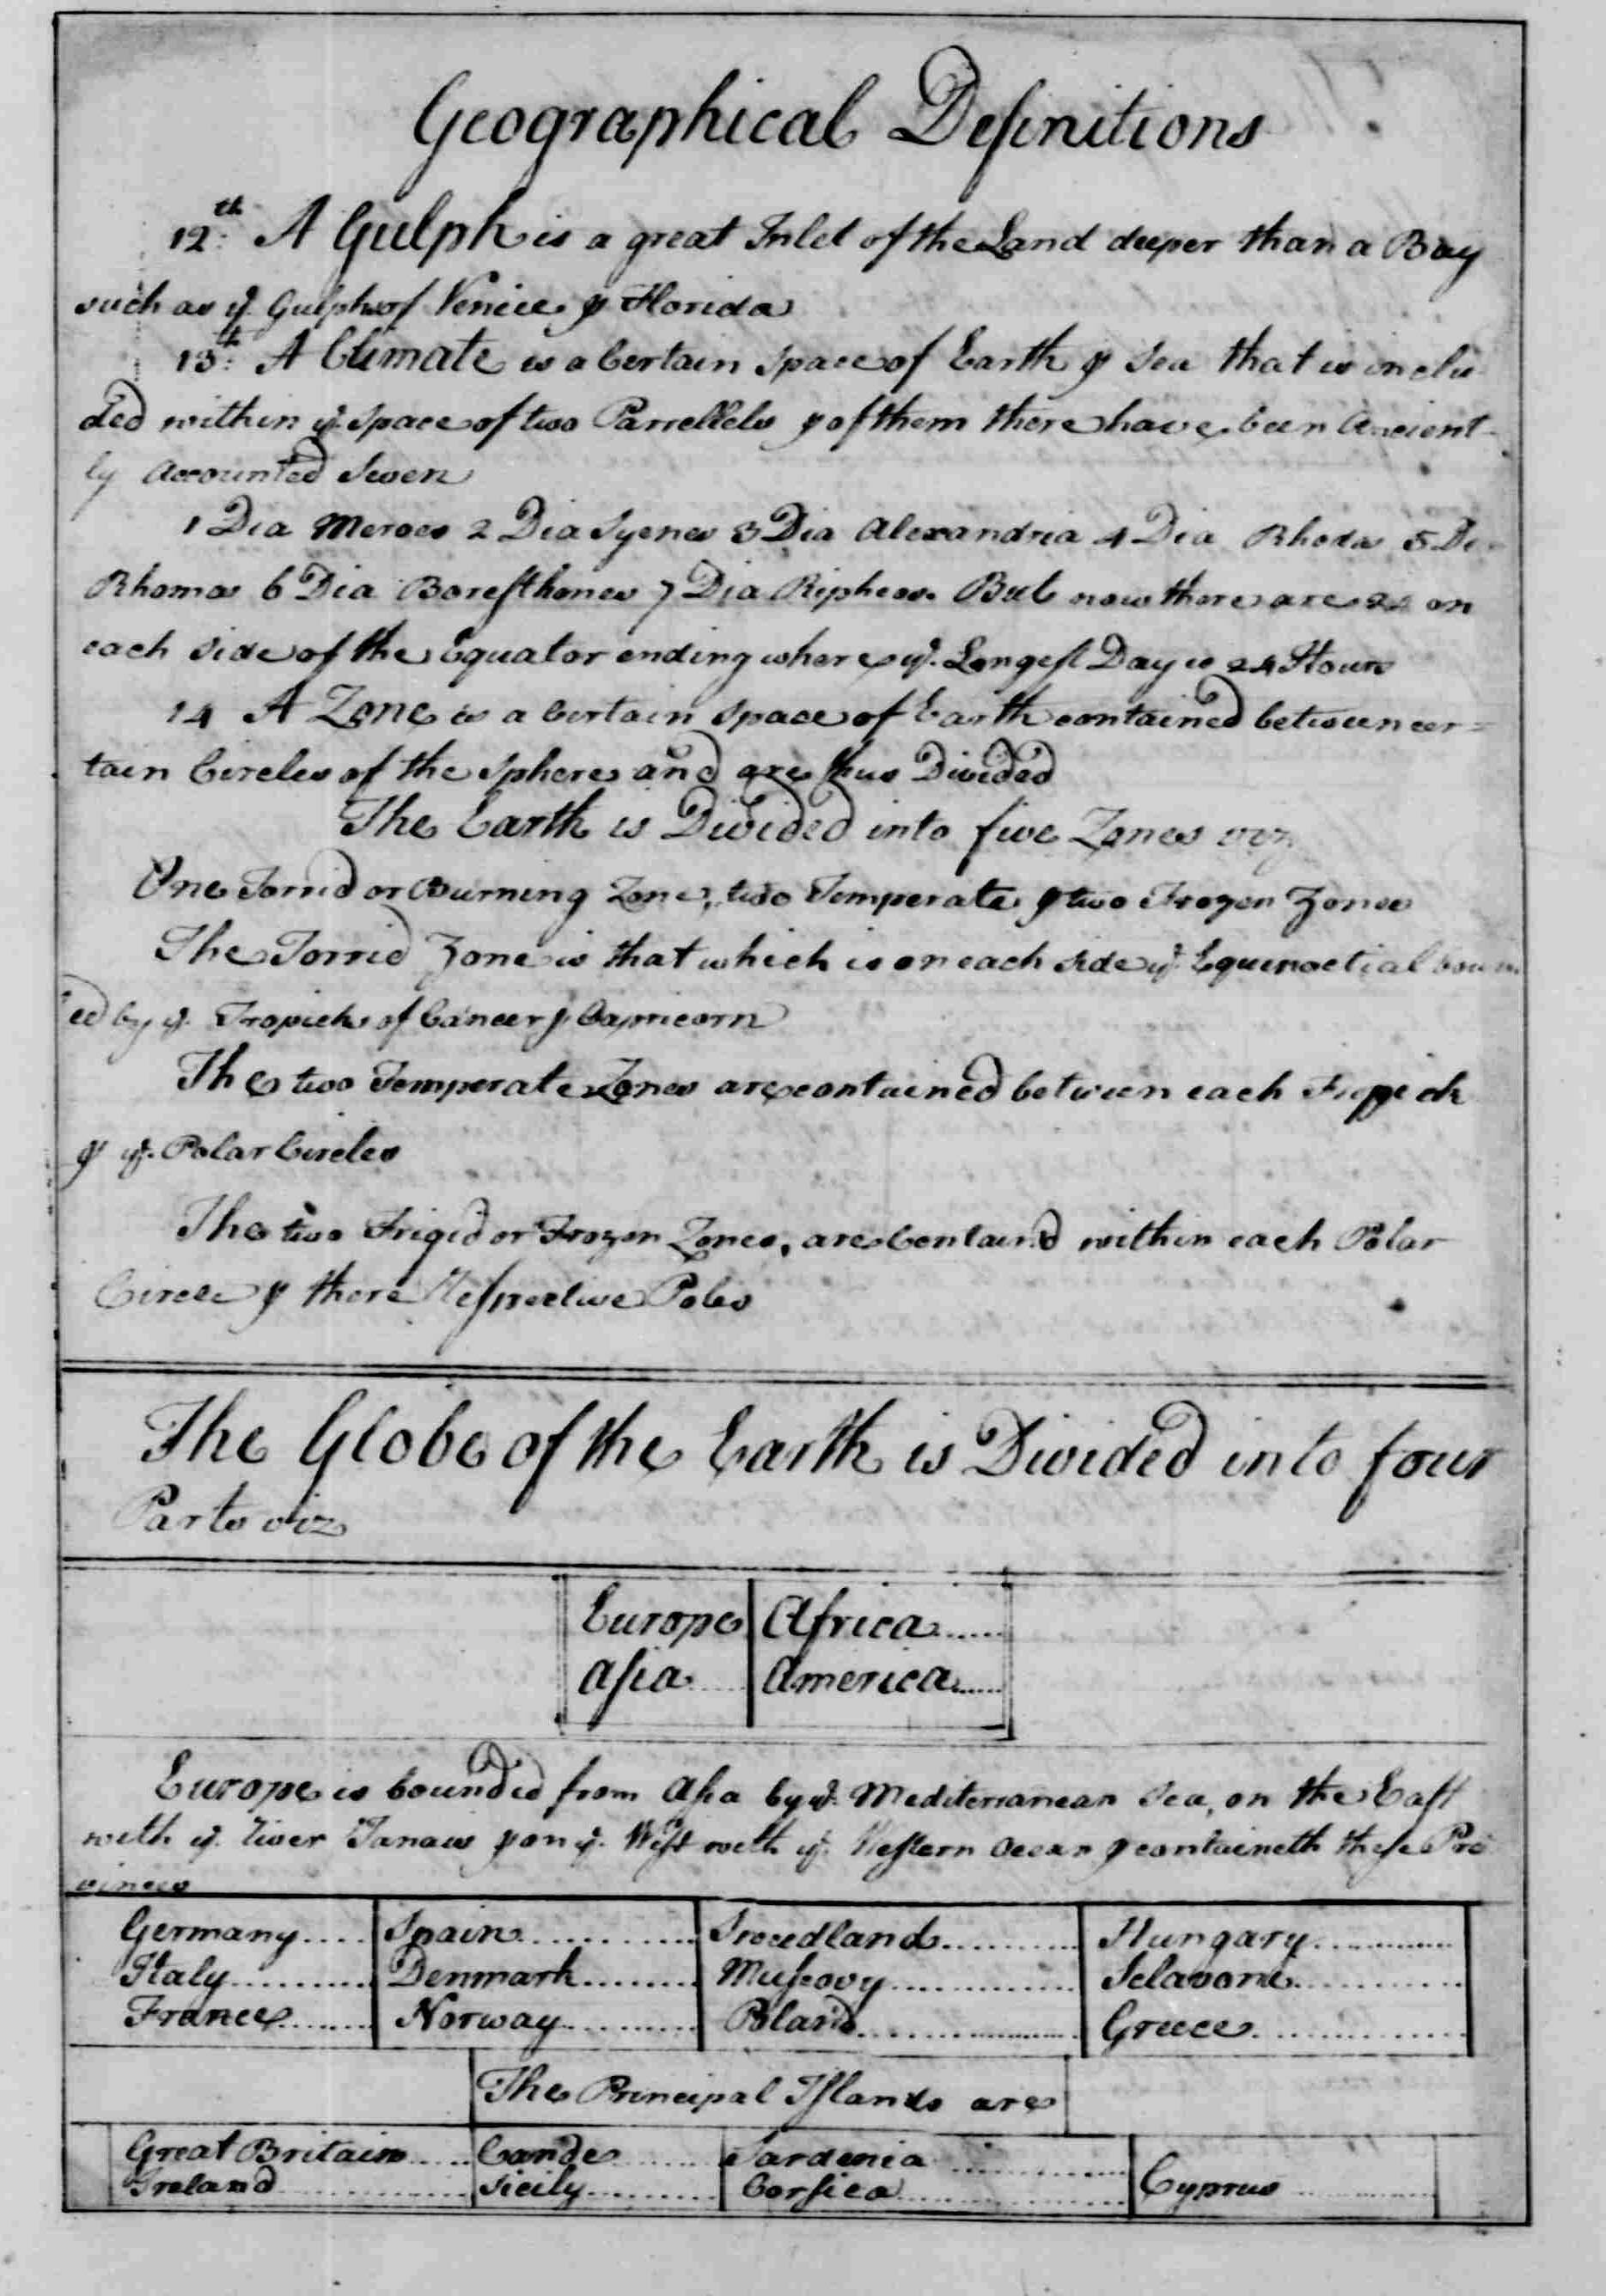 Geographical Definitions
12th. A Gulph is a great Inlet of the Land deeper than a Bay
such as ye. Gulphs of Venice & Florida
13th. A Climate is a Certain Space of Earth & Sea that is inclu
ded within ye. Space of two Parrellels & of them there have been Ancient-
ly Accounted Seven
1 Dia Meroes 2 Dia Syenes 3 Dia Alexandria 4 Dia Rhodas 5 Di
Rhomas 6 Dia Boresthenes 7 Dia Ripheos. But now there are 24 on
each side of the Equator ending where ye. Longest Day is 24 Hours
14 A Zone is a Certain Space of Earth contained between cer=
tain Circles of the Sphere and are thus Divided
The Earth is Divided into five Zones viz
One Torrid or Burning Zone, two Temperate & two Frozen Zones
The Torrid Zone is that which is on each side ye. Equinoctial boun
ed by ye. Tropicks of Cancer & Capricorn
The two Temperate Zones are contained between each Tropick
& ye. Polar Circles
The two Frigid or Frozen Zones, are Contain'd within each Polar
Circle & there Respective Poles
The Globe of the Earth is Divided into four
Parts viz
Europe Africa
Asia America
Europe is bounded from Asia by ye. Mediterranean Sea, on the East
with ye. River Tanais & on ye. West with ye. Western Ocean & containeth these Pro
vinces
Germany Spain Swedland Hungary
Italy Denmark Muscovy Sclavone
France Norway Poland Greece
The Principal Islands are
Great Britain Cande Sardenia
Ireland Sicily Corsica Cyprus